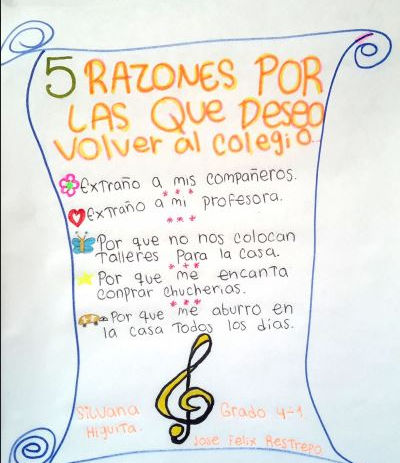 5 RAZONES POR
LAS QUE DESEO
VOLVER al colegio
Extraño a mis compañeros.
Extraño a mi profesora.
Por que no nos colocan
Talleres para la casa.
Por que me encanta
conprar chucherias.
Por que me aburro en
la casa Todos los dias.
Silvana
Higuita.
Grado 4-1
Jose Felix Restrepo